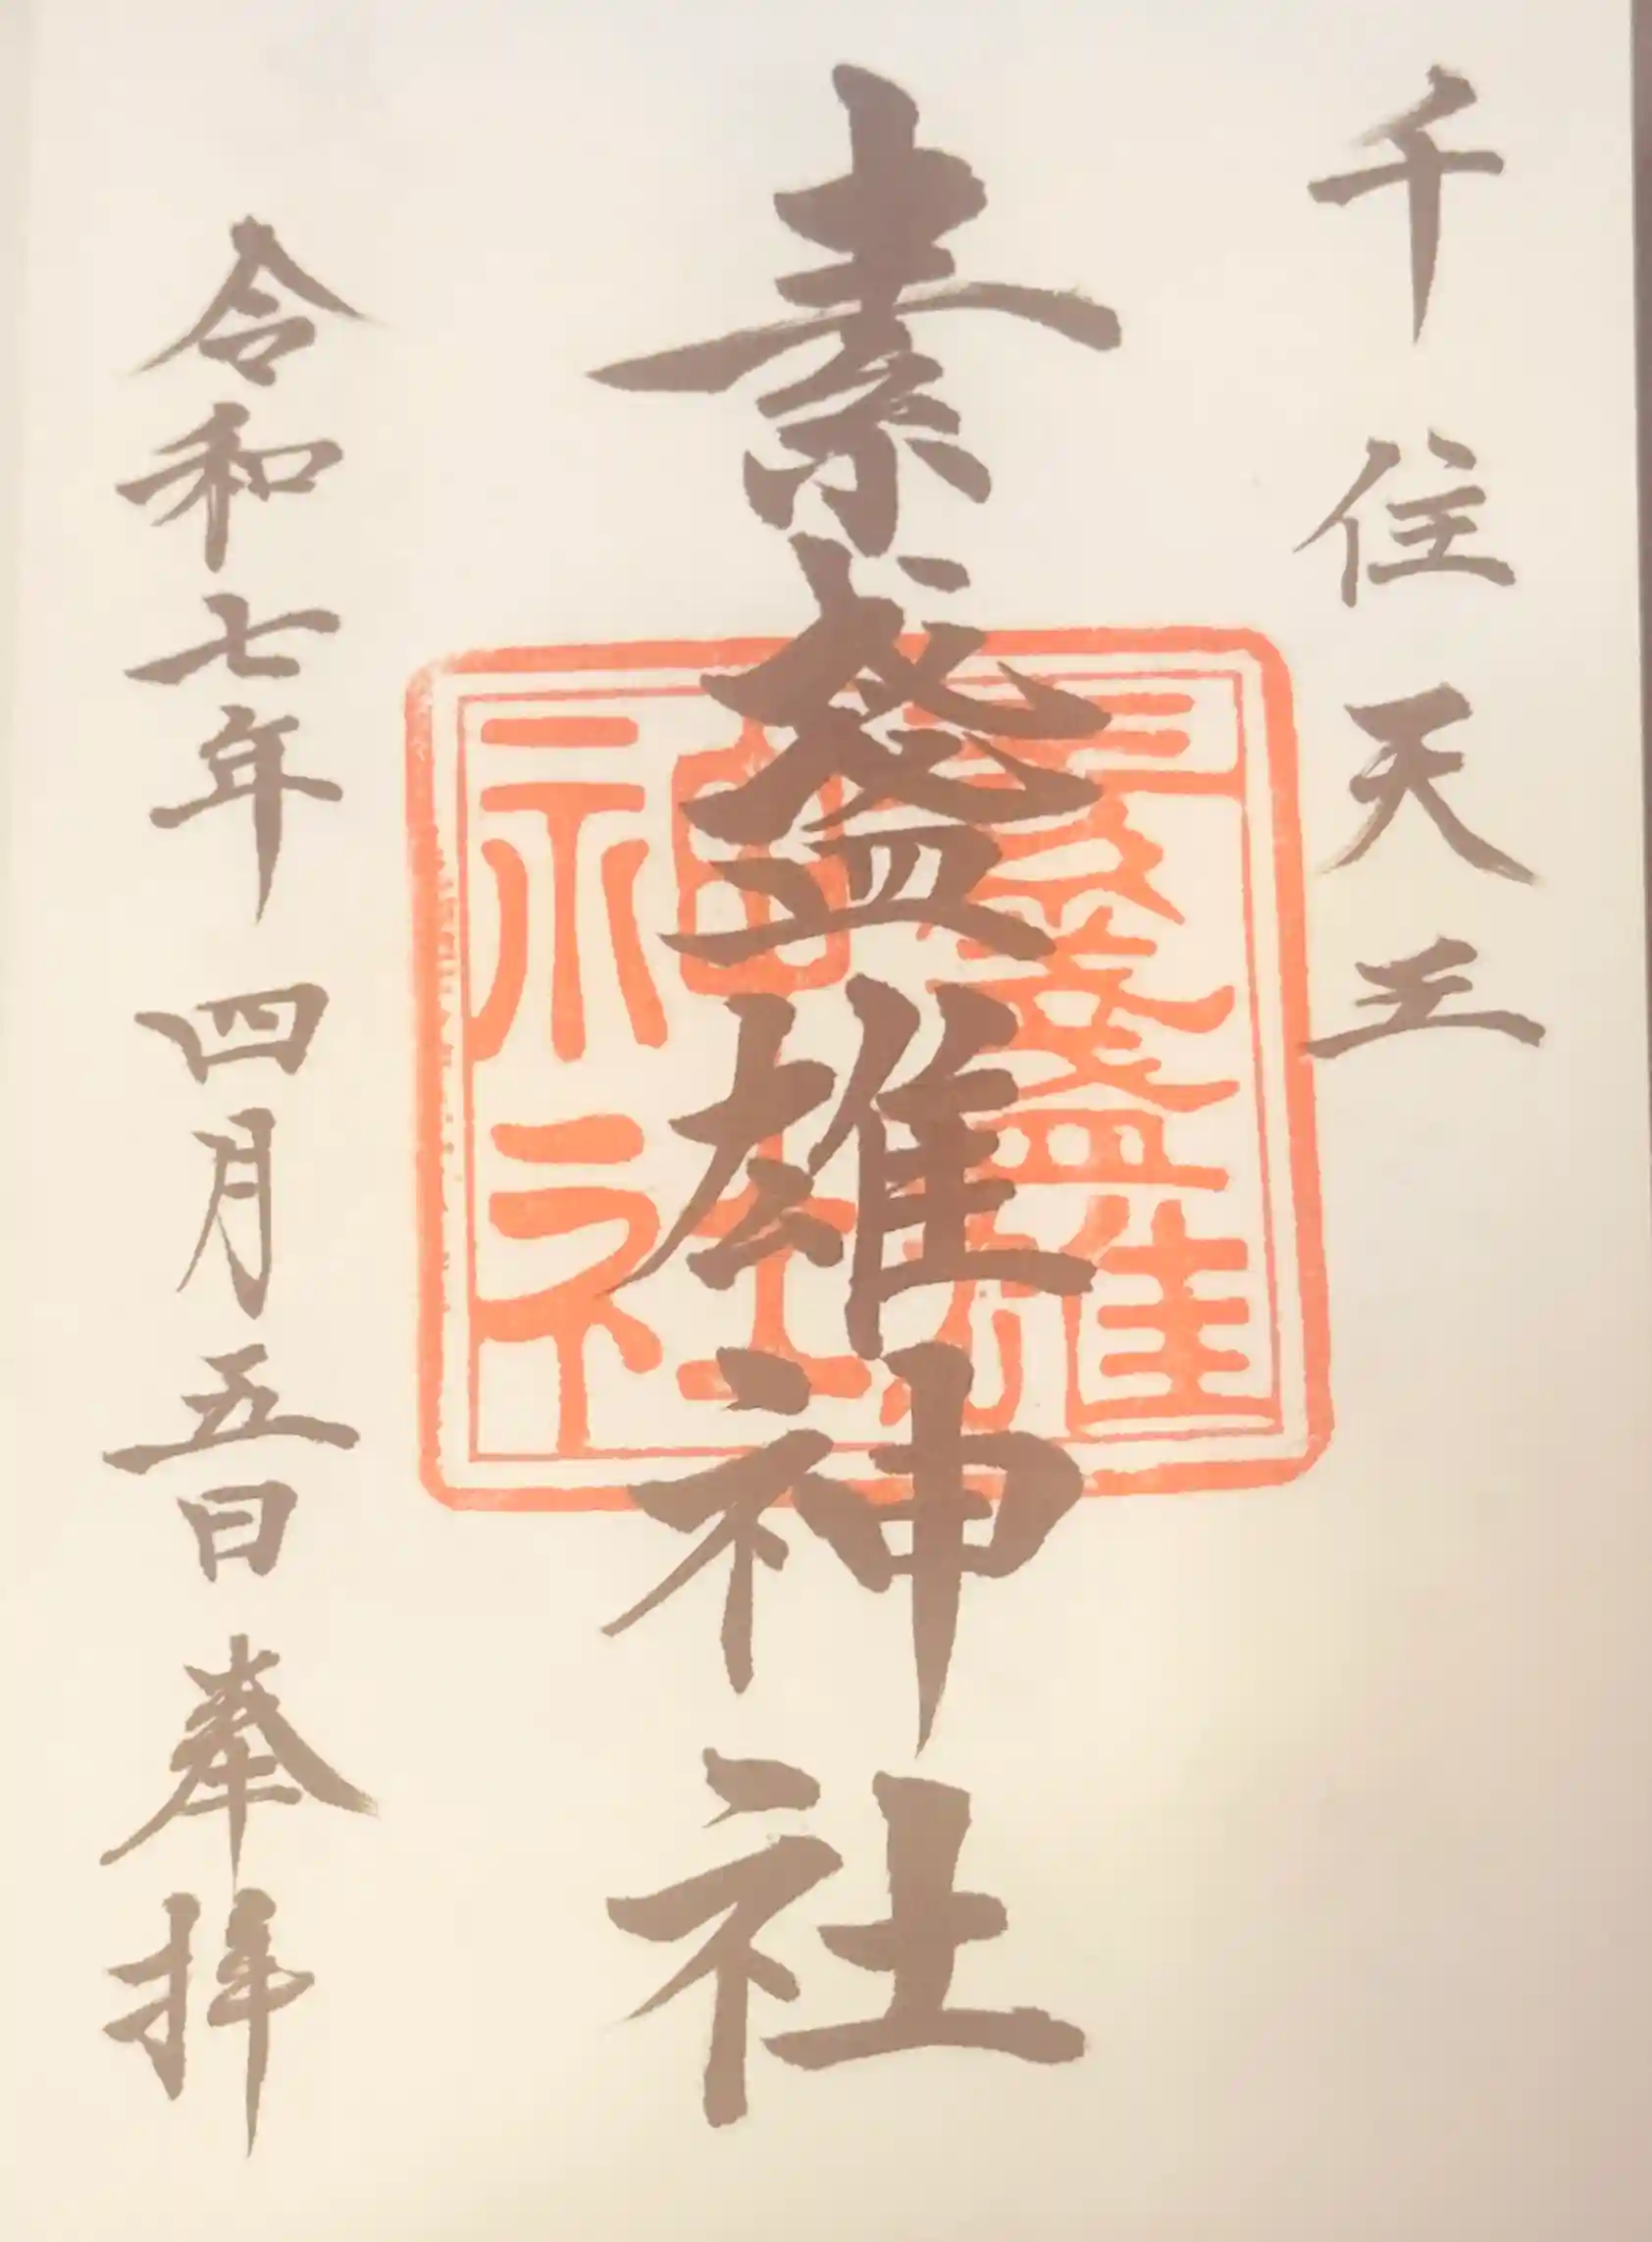 千住天王
素盞雄神社
素盞雄神社
令和七年 四月五日 奉拝